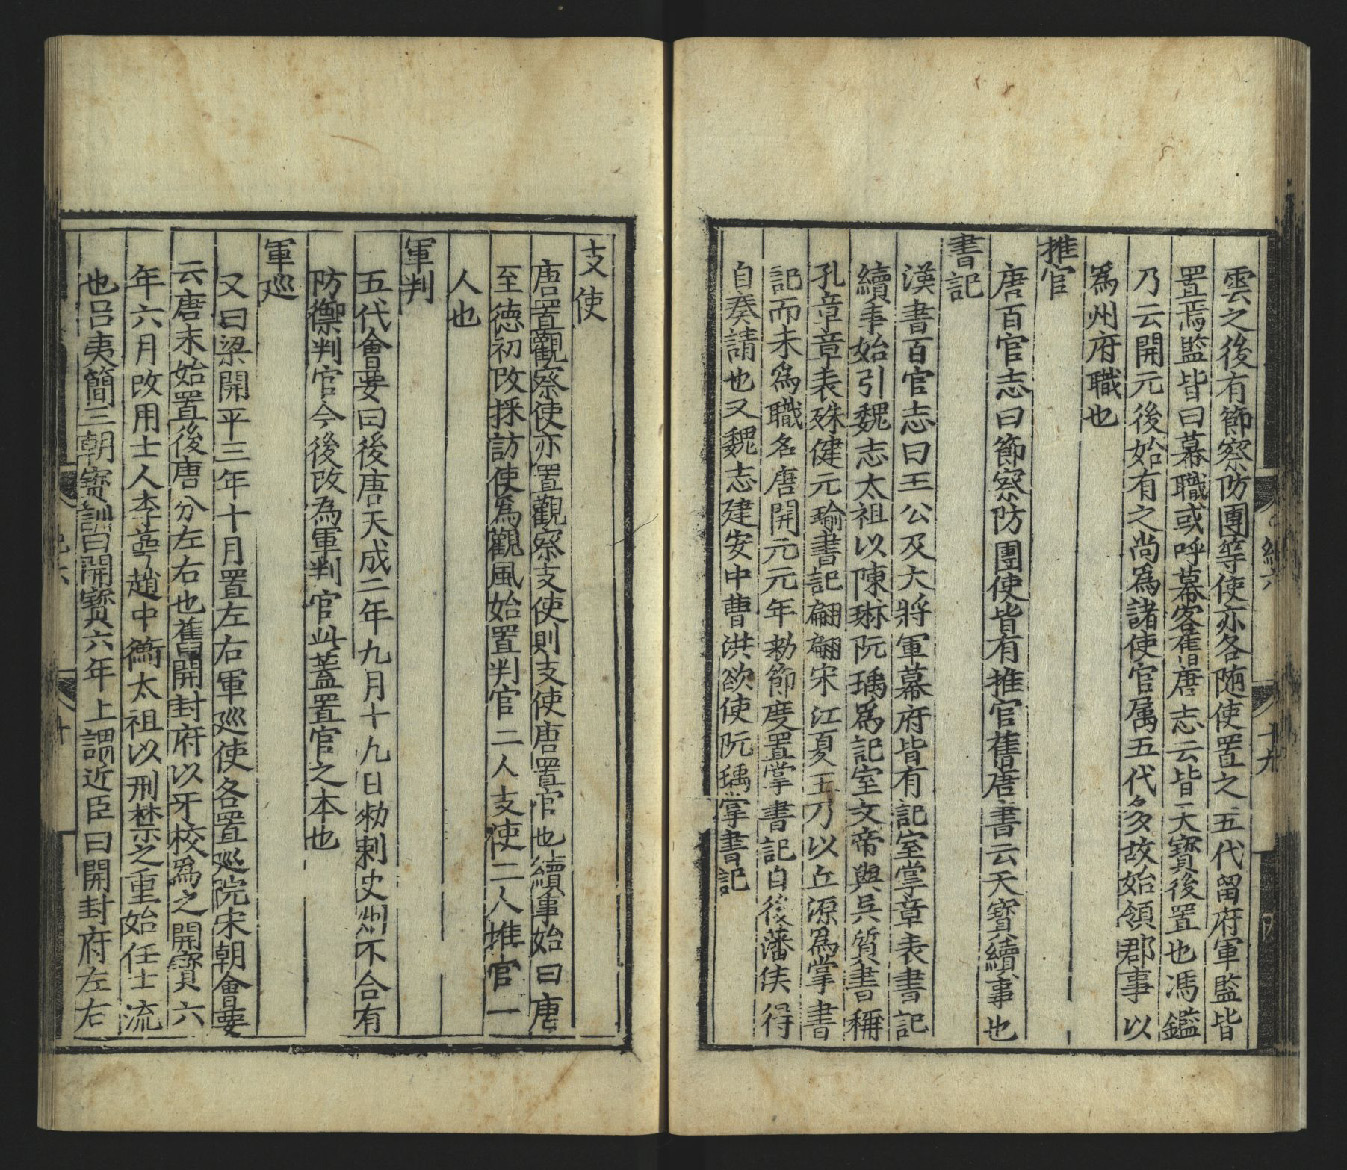 雲之後有節察防團等使亦各隨使置之五代留府軍監皆
置焉監皆曰幕職或呼幕客舊唐志云皆天寶後置也馮鑑
乃云開元後始有之尚爲諸使官属五代多故始領郡事以
爲州府職也
推官
唐百官志曰節察防團使皆有推官舊唐書云天寶續事也
書記
漢書百官志曰王公及大將軍幕府皆有記室掌章表書記
續事始引魏志太祖以陳琳阮瑀爲記室文帝與吳質書稱
孔章章表殊健元瑜書記翩翩宋江夏王乃以丘源爲掌書
記而未爲職名唐開元元年勑節度置掌書記自後藩侯得
自奏請也又魏志建安中曹洪欲使阮瑀掌書記
支使
唐置觀察使亦置觀察支使則支使唐置官也續事始曰唐
至德初改採訪使爲觀風始置判官二人支使二人推官一
人也
軍判
五代會要曰後唐天成二年九月十九日勑刺史州不合有
防禦判官今後改為軍判官此蓋置官之本也
軍巡
又曰梁開平三年十月置左右軍巡使各置巡院宋朝會要
云唐末始置後唐分左右也舊開封府以牙校爲之開寶六
年六月改用士人李萼趙中衞太祖以刑禁之重始任士流
也吕夷簡三朝寶訓曰開寶六年上謂近臣曰開封府左右